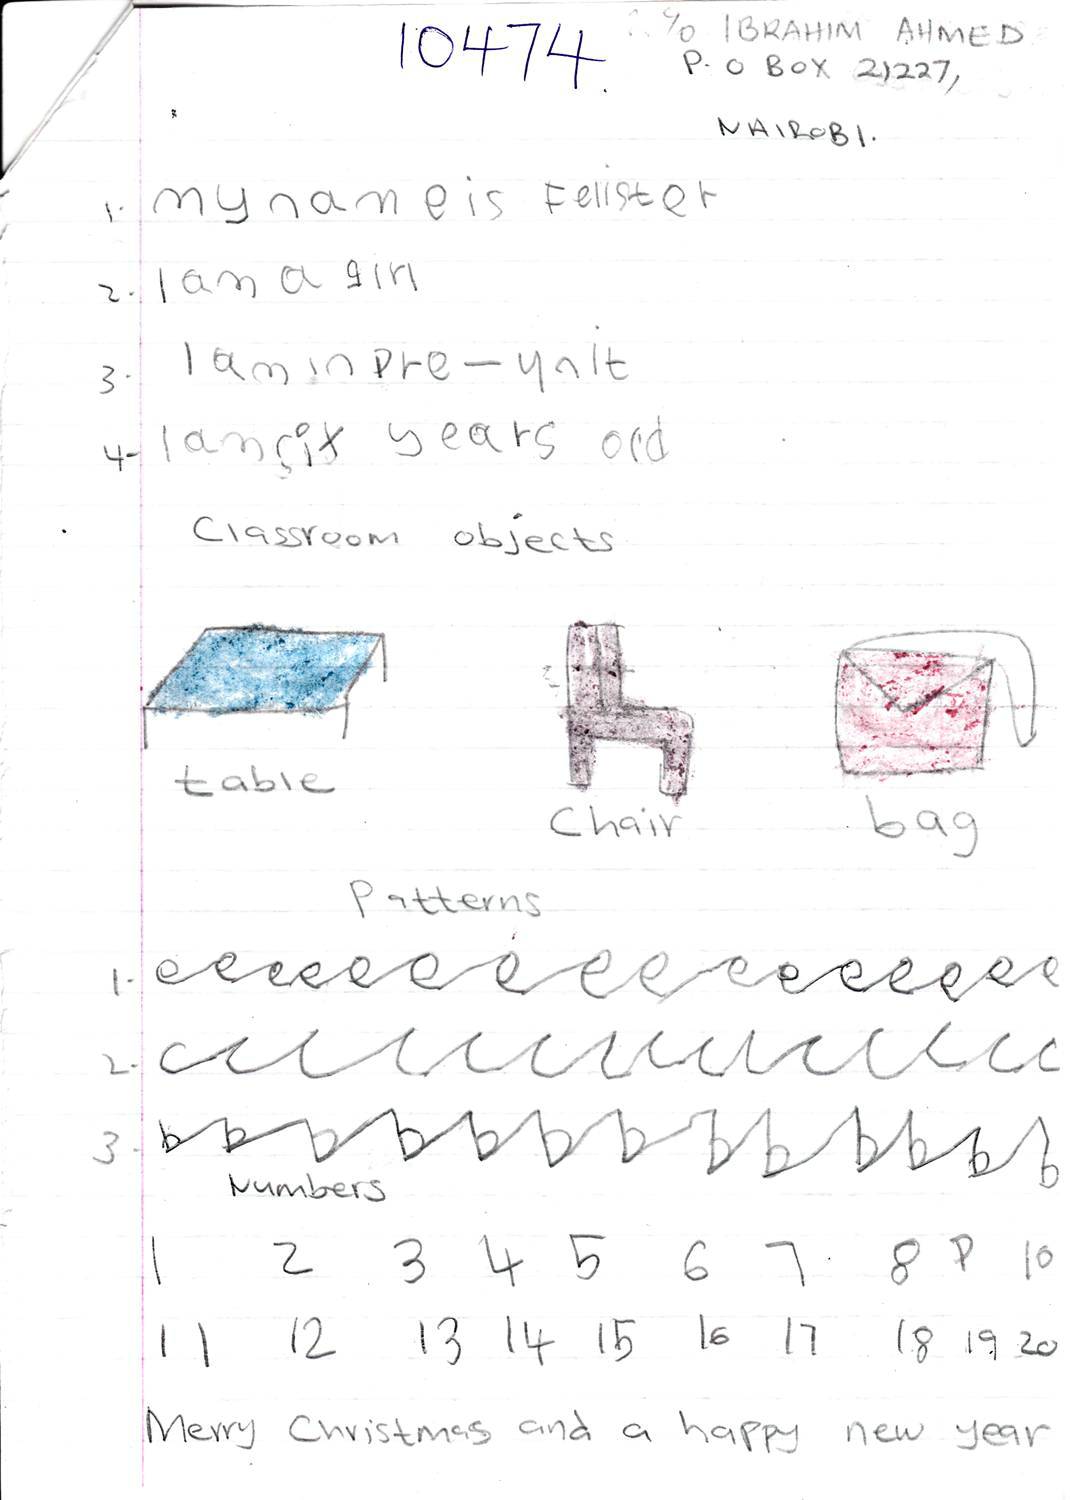 10474
% IBRAHIM AHMED
P.O BOX 21227,
NAIROBI.
1. my name is Felister
2. I am a girl
3. I am in pre-unit
4. I am six years old
Classroom objects
table
Chair
bag
Patterns
1. eeeeeeeeeeeeeeee
2. cccccccccccccc
3. bbbbbbbbbbbbb
Numbers
1 2 3 4 5 6 7 8 9 10
11 12 13 14 15 16 17 18 19 20
Merry Christmas and a happy new year